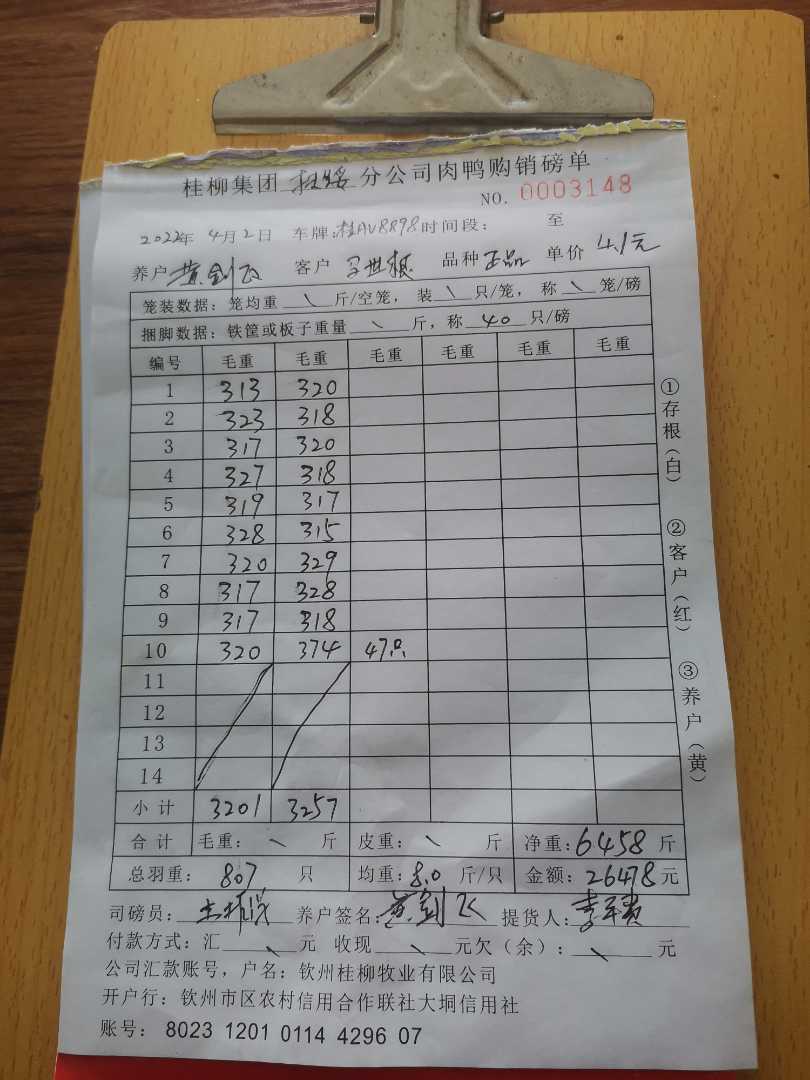 桂柳集团 扶绥 分公司肉鸭购销磅单
NO. 0003148
2022年 4月2日 车牌:桂AV8898 时间段: 至
养户 黄剑飞 客户 品种 正品 单价 4.1元
笼装数据: 笼均重 \ 斤/空笼, 装 \ 只/笼, 称 \ 笼/磅
捆脚数据: 铁筐或板子重量 \ 斤, 称 40 只/磅
编号 毛重 毛重 毛重 毛重 毛重 毛重
1 313 320
2 323 318
3 317 320
4 327 318
5 319 317
6 328 315
7 320 329
8 317 328
9 317 318
10 320 374 47只
11
12
13
14
小计 3201 3257
合计 毛重: \ 斤 皮重: \ 斤 净重: 6458 斤
总羽重: 807 只 均重: 8.0 斤/只 金额: 26478 元
司磅员: 养户签名: 黄剑飞 提货人:
付款方式: 汇 \ 元 收现 \ 元欠(余): \ 元
公司汇款账号, 户名: 钦州桂柳牧业有限公司
开户行: 钦州市区农村信用合作联社大垌信用社
账号: 8023 1201 0114 4296 07
①存根(白)
②客户(红)
③养户(黄)